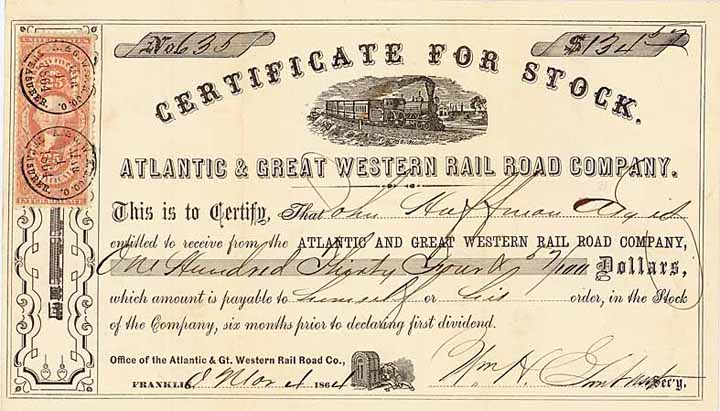 No 635 $134 52
CERTIFICATE FOR STOCK.
ATLANTIC & GREAT WESTERN RAIL ROAD COMPANY.
This is to Certify, That John Huffman is
entitled to receive from the ATLANTIC AND GREAT WESTERN RAIL ROAD COMPANY,
One Hundred Thirty Four & 52/100 Dollars,
which amount is payable to himself or his order, in the Stock
of the Company, six months prior to declaring first dividend.
Office of the Atlantic & Gt. Western Rail Road Co.,
FRANKLIN, Mar 4 1864 Wm H. Sec'y.